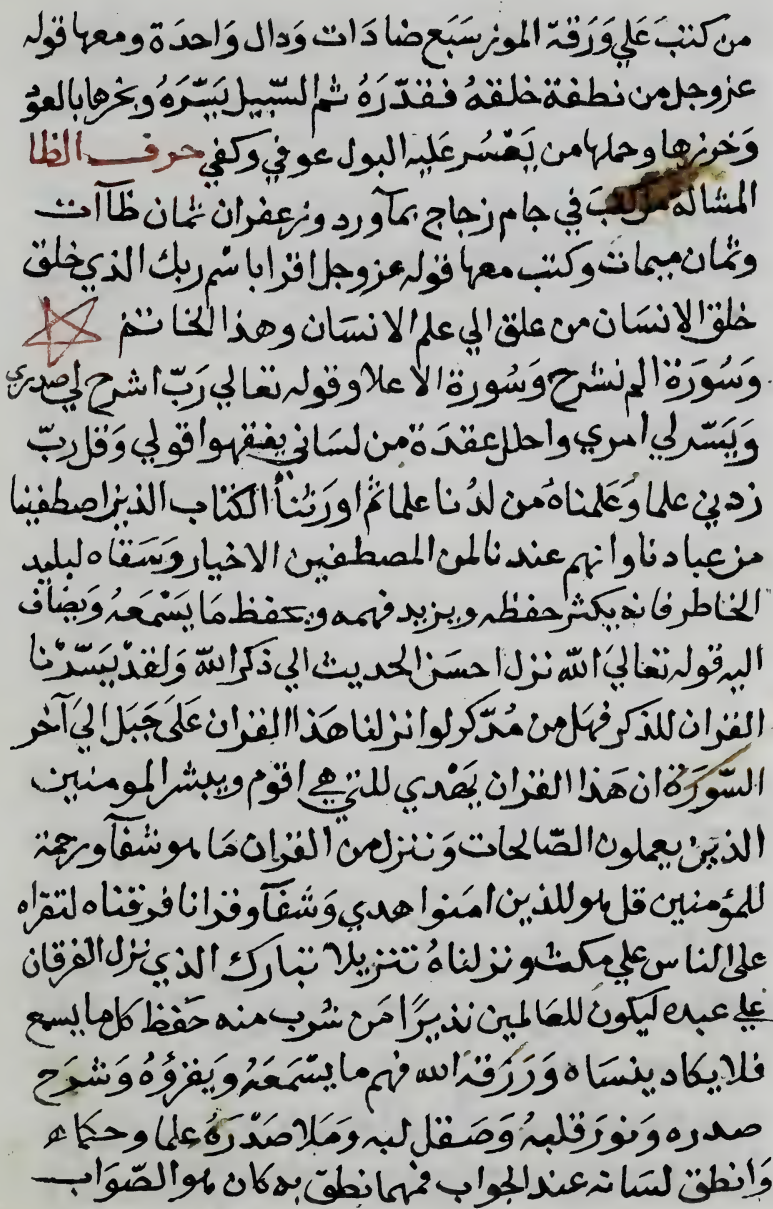 من كتب علي ورقة الموز سَبَع ضادات ودال وَاحدَة ومعها قوله
عزوجل من نطفة خلقهُ فقدّرَهُ ثم السّبيل يَسّرَهُ وبخرها بالعود
وَخرزها وحملها من يَعْسُر عَليه البول عوفي وكفي حرف الظا
المشالة من كتبَ في جام زجاج بمآورد وزعفران ثمان ظآات
وثمان ميمات وكتب معها قوله عزوجل اقرا باسْم ربك الذي خلق
خلق الانسَان من علق الي علم الانسَان وهذا الخاتم
وَسُورَة الم نشرح وَسُورة الاعلا وقوله تعالي رَبّ اشرح لي صدري
وَيَسّر لي امري واحلل عقدَة من لسَاني يفقهوا قولي وَقل ربّ
زدني علما وَعَلمناهُ من لدُنا علما ثم اورَثنأ الكتاب الذين اصطفينا
من عبادنا وانهم عندنا لمن المصطفين الاخيار وَسَقاه لبليد
الخاطر فانه يكثر حفظه ويزيد فهمه ويحفظ مَا يَسْمَعَهُ وَيضاف
اليه قوله تعاليَ الله نزل احسَن الحديث الي ذكر الله وَلقدْ يَسّرْنا
القران للذكر فهَل من مُدّكر لو انزلنا هَذا القران عَلىَ جَبَل اليَ آخر
السّورَة ان هَذا القران يَهْدي للتي هي اقوَم ويبشر المومنين
الذين يعملون الصّالحات وَننزل من القران مَا هو شفآ ورحمة
للمؤمنين قل هو للذين امَنوا هدي وَشفآ وقرانا فرقناه لتقراه
على الناس علي مكث ونزلناهُ تنزيلا تبارك الذي نزل الفرقان
علي عبده ليكون للعَالمين نذيرًا مَن شرب منه حَفظ كل ما يسمع
فلا يكاد ينسَاه وَرَزَقهُ الله فهم ما يسْمَعَهُ وَيَقرؤهُ وَشرَح
صدره وَنورَ قلبهُ وَصَقل لبه وَمَلا صَدْرَهُ علما وحكما
وَانطق لسَانه عند الجواب فمهما نطق به كان هو الصّوَاب